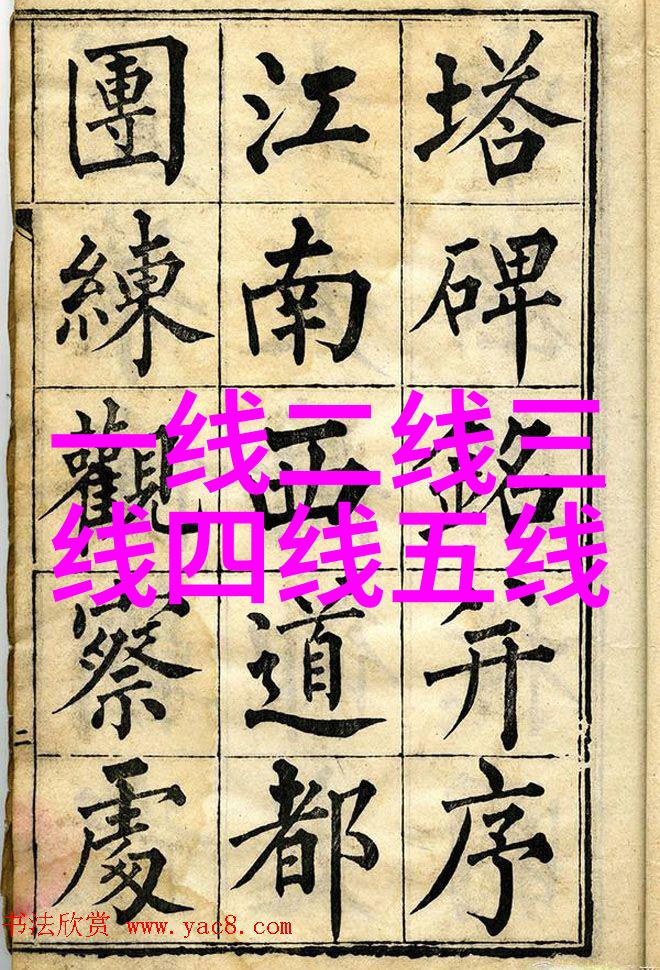 塔碑銘并序
江南西道都
團練觀察處
二
一线二线三
线四线五线
书法欣赏 www.yac8.com